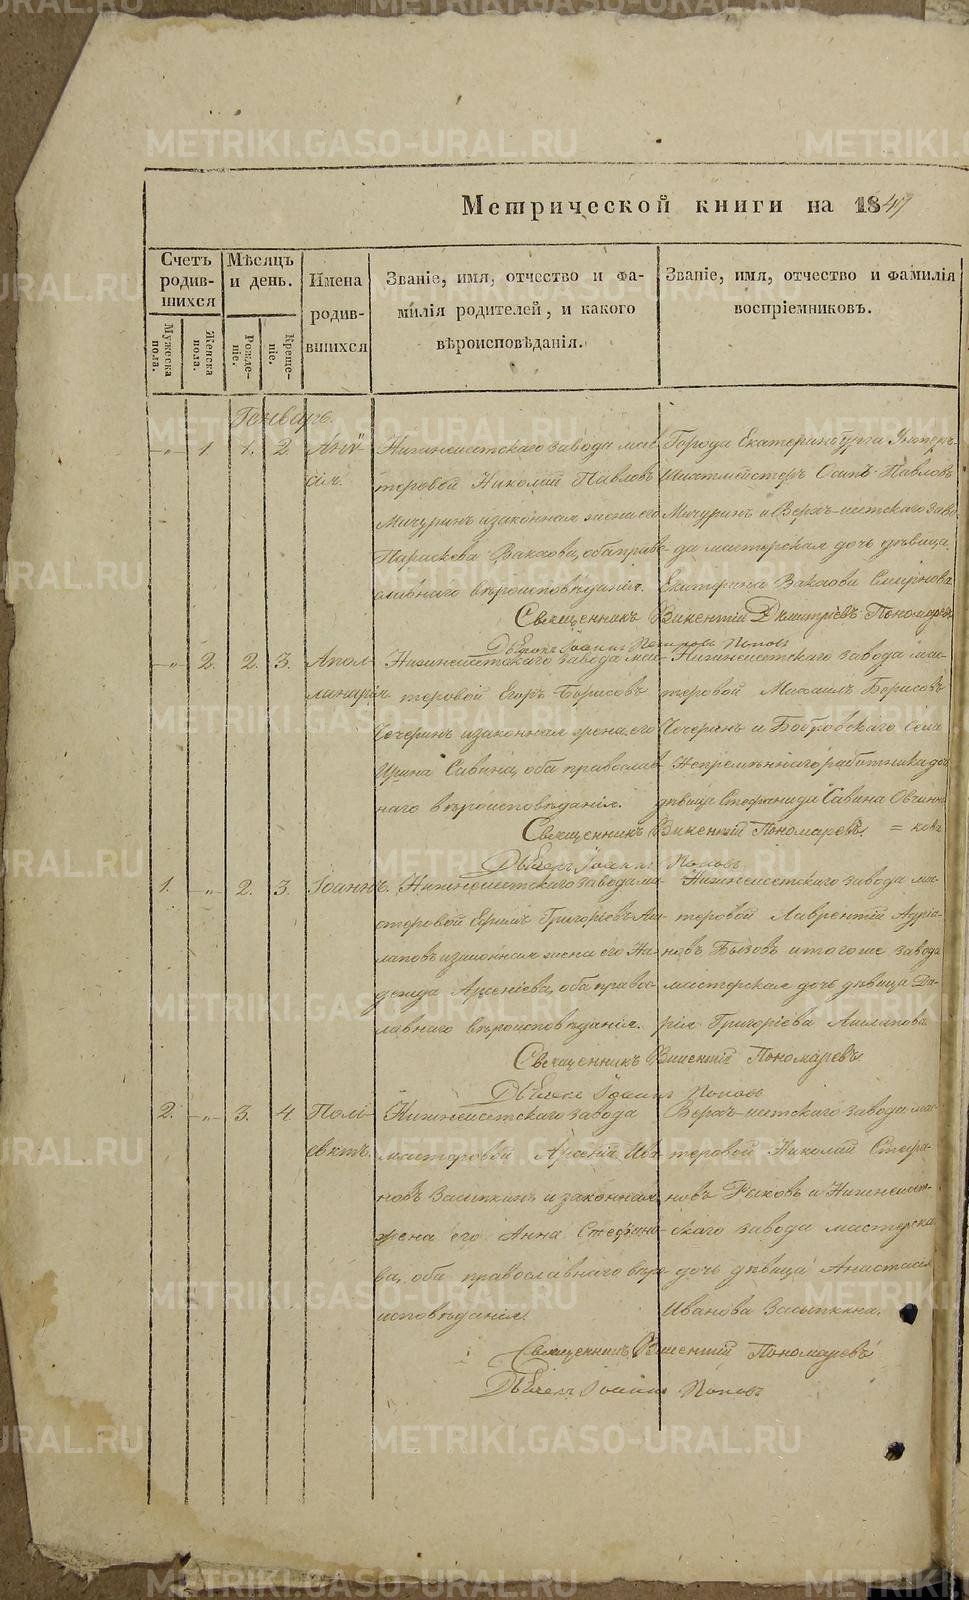 Метрической книги на 1847
Счетъ родив-шихся
Мѣсяцъ и день.
Имена родив-шихся
Званіе, имя, отчество и фа-
милія родителей, и какого
вѣроисповѣданія.
Званіе, имя, отчество и фамилія
воспріемниковъ.
Мужеска пола.
Женска пола.
Рожде-ніе.
Креще-ніе.
Генварь.
1. 1. 2.
Нижнеисетскаго завода мас-
теровой Николай Павловъ
Мичуринъ и законная жена его
Параскева, оба право-
славнаго вѣроисповѣданія.
Города Екатеринбурга Унтеръ-
Шихтмейстеръ Павловъ
Мичуринъ и Верхъ-исетскаго заво-
да мастерская дочь дѣвица
Екатерина Смирнова
Священникъ Викентій Димитріевъ Пономаревъ
Іоаннъ Поповъ
2. 2. 3. Апол-
линарія
Нижнеисетскаго завода мас-
теровой Егоръ Борисовъ
Чечеринъ и законная жена его
Ирина Савина, оба православ-
наго вѣроисповѣданія.
Нижнеисетскаго завода мас-
теровой Михаилъ Борисовъ
Чечеринъ и Бобровскаго села
Непремѣннаго работника дочь
дѣвица Стефанида Савина Овчинни-
= кова
Священникъ Викентій Пономаревъ.
Іоаннъ Поповъ
1. 2. 3. Іоаннъ.
Нижнеисетскаго завода ма-
стеровой Ефимъ Григорьевъ
и законная жена его На-
дежда Арсеніева, оба право-
славнаго вѣроисповѣданія.
Нижнеисетскаго завода ма-
стеровой Лаврентій Адріа-
новъ Бызовъ и того же завода
мастерская дочь дѣвица Да-
рія Григоріева
Священникъ Викентій Пономаревъ
Іоаннъ Поповъ
2. 3. 4. Полі-
евктъ.
Нижнеисетскаго завода
мастеровой Арсеній Ива-
новъ Засыпкинъ и законная
жена его Анна Стефано-
ва, оба православнаго вѣро-
исповѣданія.
Верхъ-исетскаго завода ма-
теровой Николай Стефа-
новъ Рыковъ и Нижнеисет-
скаго завода мастерска
дочь дѣвица Анастасія
Иванова Засыпкина.
Священникъ Викентій Пономаревъ
Іоаннъ Поповъ
METRIKI.GASO-URAL.RU